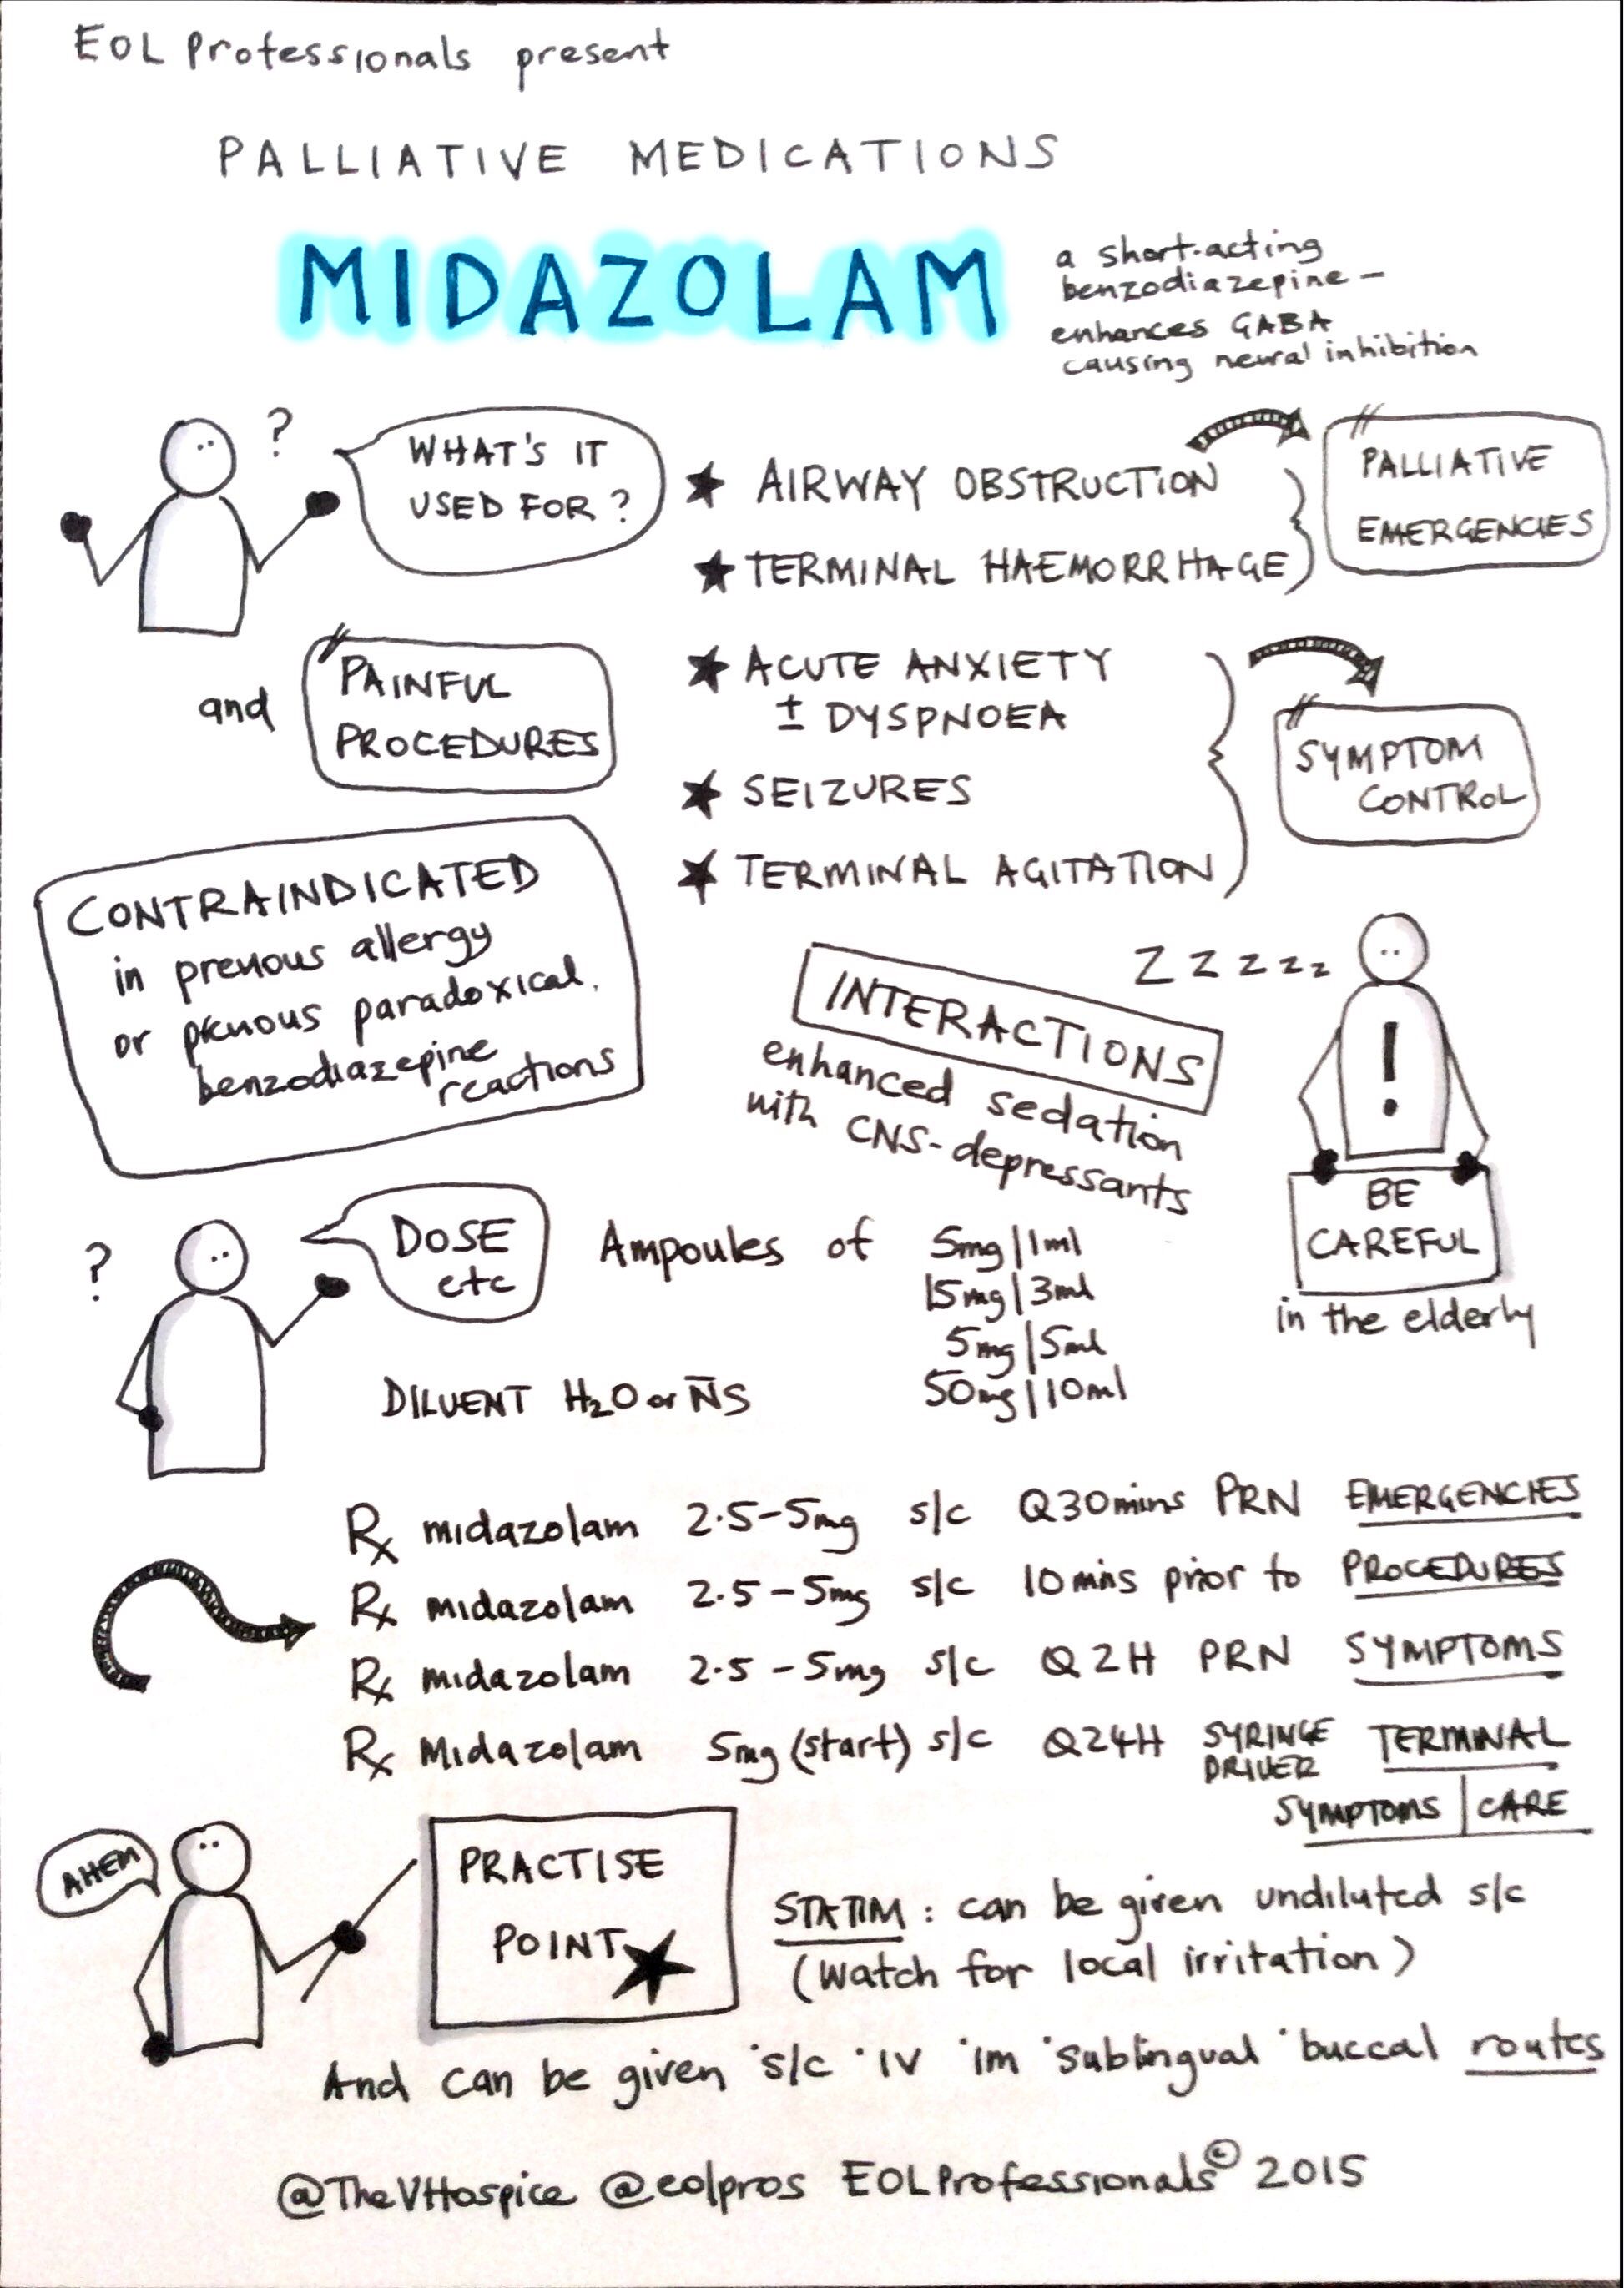 EOL Professionals present
PALLIATIVE MEDICATIONS
MIDAZOLAM
a short-acting
benzodiazepine –
enhances GABA
causing neural inhibition
?
WHAT'S IT
USED FOR?
★ AIRWAY OBSTRUCTION
★ TERMINAL HAEMORRHAGE
PALLIATIVE
EMERGENCIES
and
PAINFUL
PROCEDURES
★ ACUTE ANXIETY
± DYSPNOEA
★ SEIZURES
★ TERMINAL AGITATION
SYMPTOM
CONTROL
CONTRAINDICATED
in previous allergy
or previous paradoxical
benzodiazepine
reactions
INTERACTIONS
enhanced sedation
with CNS-depressants
Z Z Z Z Z
!
BE
CAREFUL
in the elderly
?
DOSE
etc
Ampoules of 5mg/1ml
15mg/3ml
5mg/5ml
50mg/10ml
DILUENT H₂O or N̄S
Rx midazolam 2.5-5mg s/c Q30mins PRN EMERGENCIES
Rx midazolam 2.5-5mg s/c 10mins prior to PROCEDURES
Rx midazolam 2.5-5mg s/c Q2H PRN SYMPTOMS
Rx Midazolam 5mg (start) s/c Q24H SYRINGE DRIVER TERMINAL
SYMPTOMS | CARE
AHEM
PRACTISE
POINT ★
STATIM: can be given undiluted s/c
(watch for local irritation)
And can be given ·s/c ·IV ·im ·sublingual ·buccal routes
@TheVHospice @eolpros EOLProfessionals© 2015